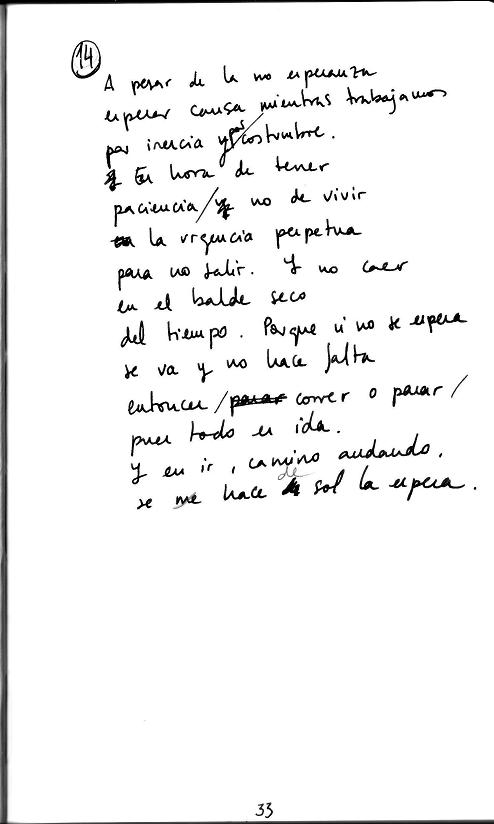 14
A pesar de la no esperanza
esperar causa mientras trabajamos
por inercia y/por costumbre.
Es hora de tener
paciencia/y no de vivir
la urgencia perpetua
para no salir. Y no caer
en el balde seco
del tiempo. Porque si no se espera
se va y no hace falta
entonces/parar correr o parar/
pues todo es ida.
Y en ir, camino andando,
se me hace de sol la espera.
33